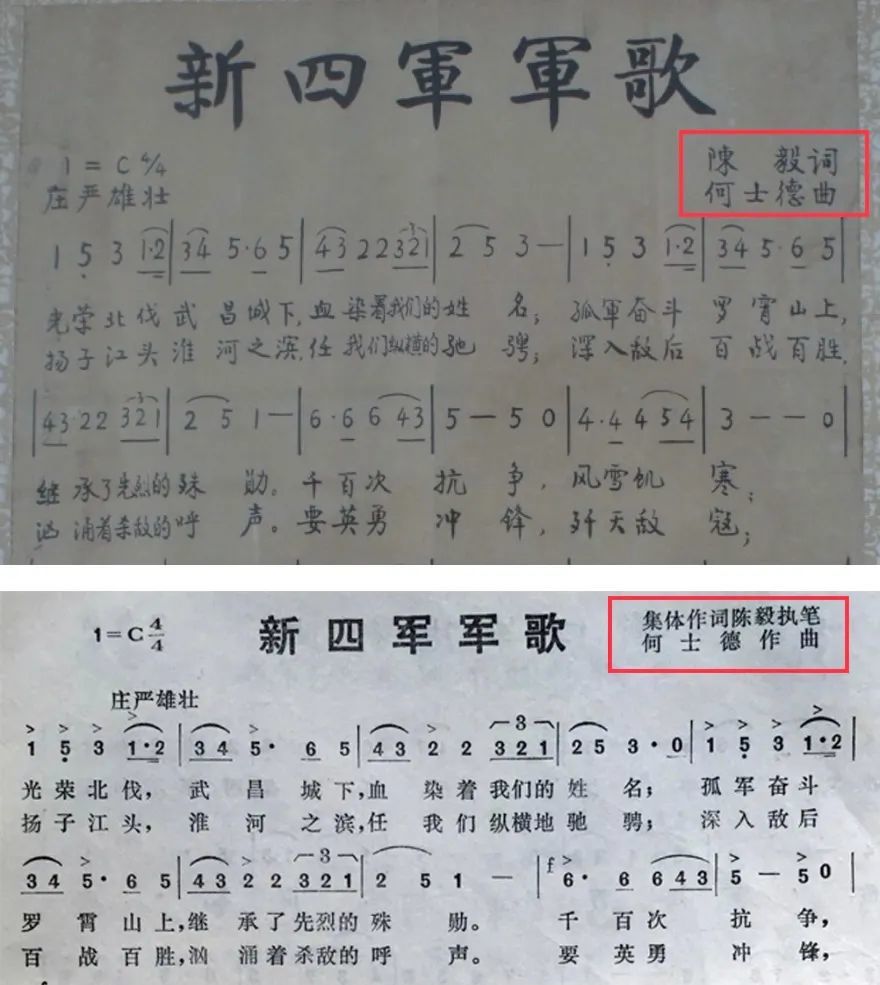 新四軍軍歌
1=C 4/4
陳毅词
庄严雄壮
何士德曲
1 5 3 1·2 | 34 5·6 5 | 43 22 321 | 2 5 3 — | 1 5 3 1·2 | 34 5·6 5
光荣北伐武昌城下,血染着我们的姓名;孤軍奋斗罗霄山上,
扬子江头淮河之滨,任我们纵横的驰骋;深入敌后百战百胜,
43 22 321 | 2 5 1 — | 6·6 6 43 | 5 — 5 0 | 4·4 4 54 | 3 — — 0
继承了先烈的殊勋。千百次抗争,风雪饥寒;
汹涌着杀敌的呼声。要英勇冲锋,歼灭敌寇;
1=C 4/4
新四军军歌
集体作词陈毅执笔
何士德作曲
庄严雄壮
1 5 3 1·2 | 3 4 5· 6 5 | 4 3 2 2 3 2 1 | 2 5 3·0 | 1 5 3 1·2
光荣北伐,武昌城下,血染着我们的姓名;孤军奋斗
扬子江头,淮河之滨,任我们纵横地驰骋;深入敌后
3 4 5· 6 5 | 4 3 2 2 3 2 1 | 2 5 1 — | f 6· 6 6 4 3 | 5 — 5 0
罗霄山上,继承了先烈的殊勋。千百次抗争,
百战百胜,汹涌着杀敌的呼声。要英勇冲锋,